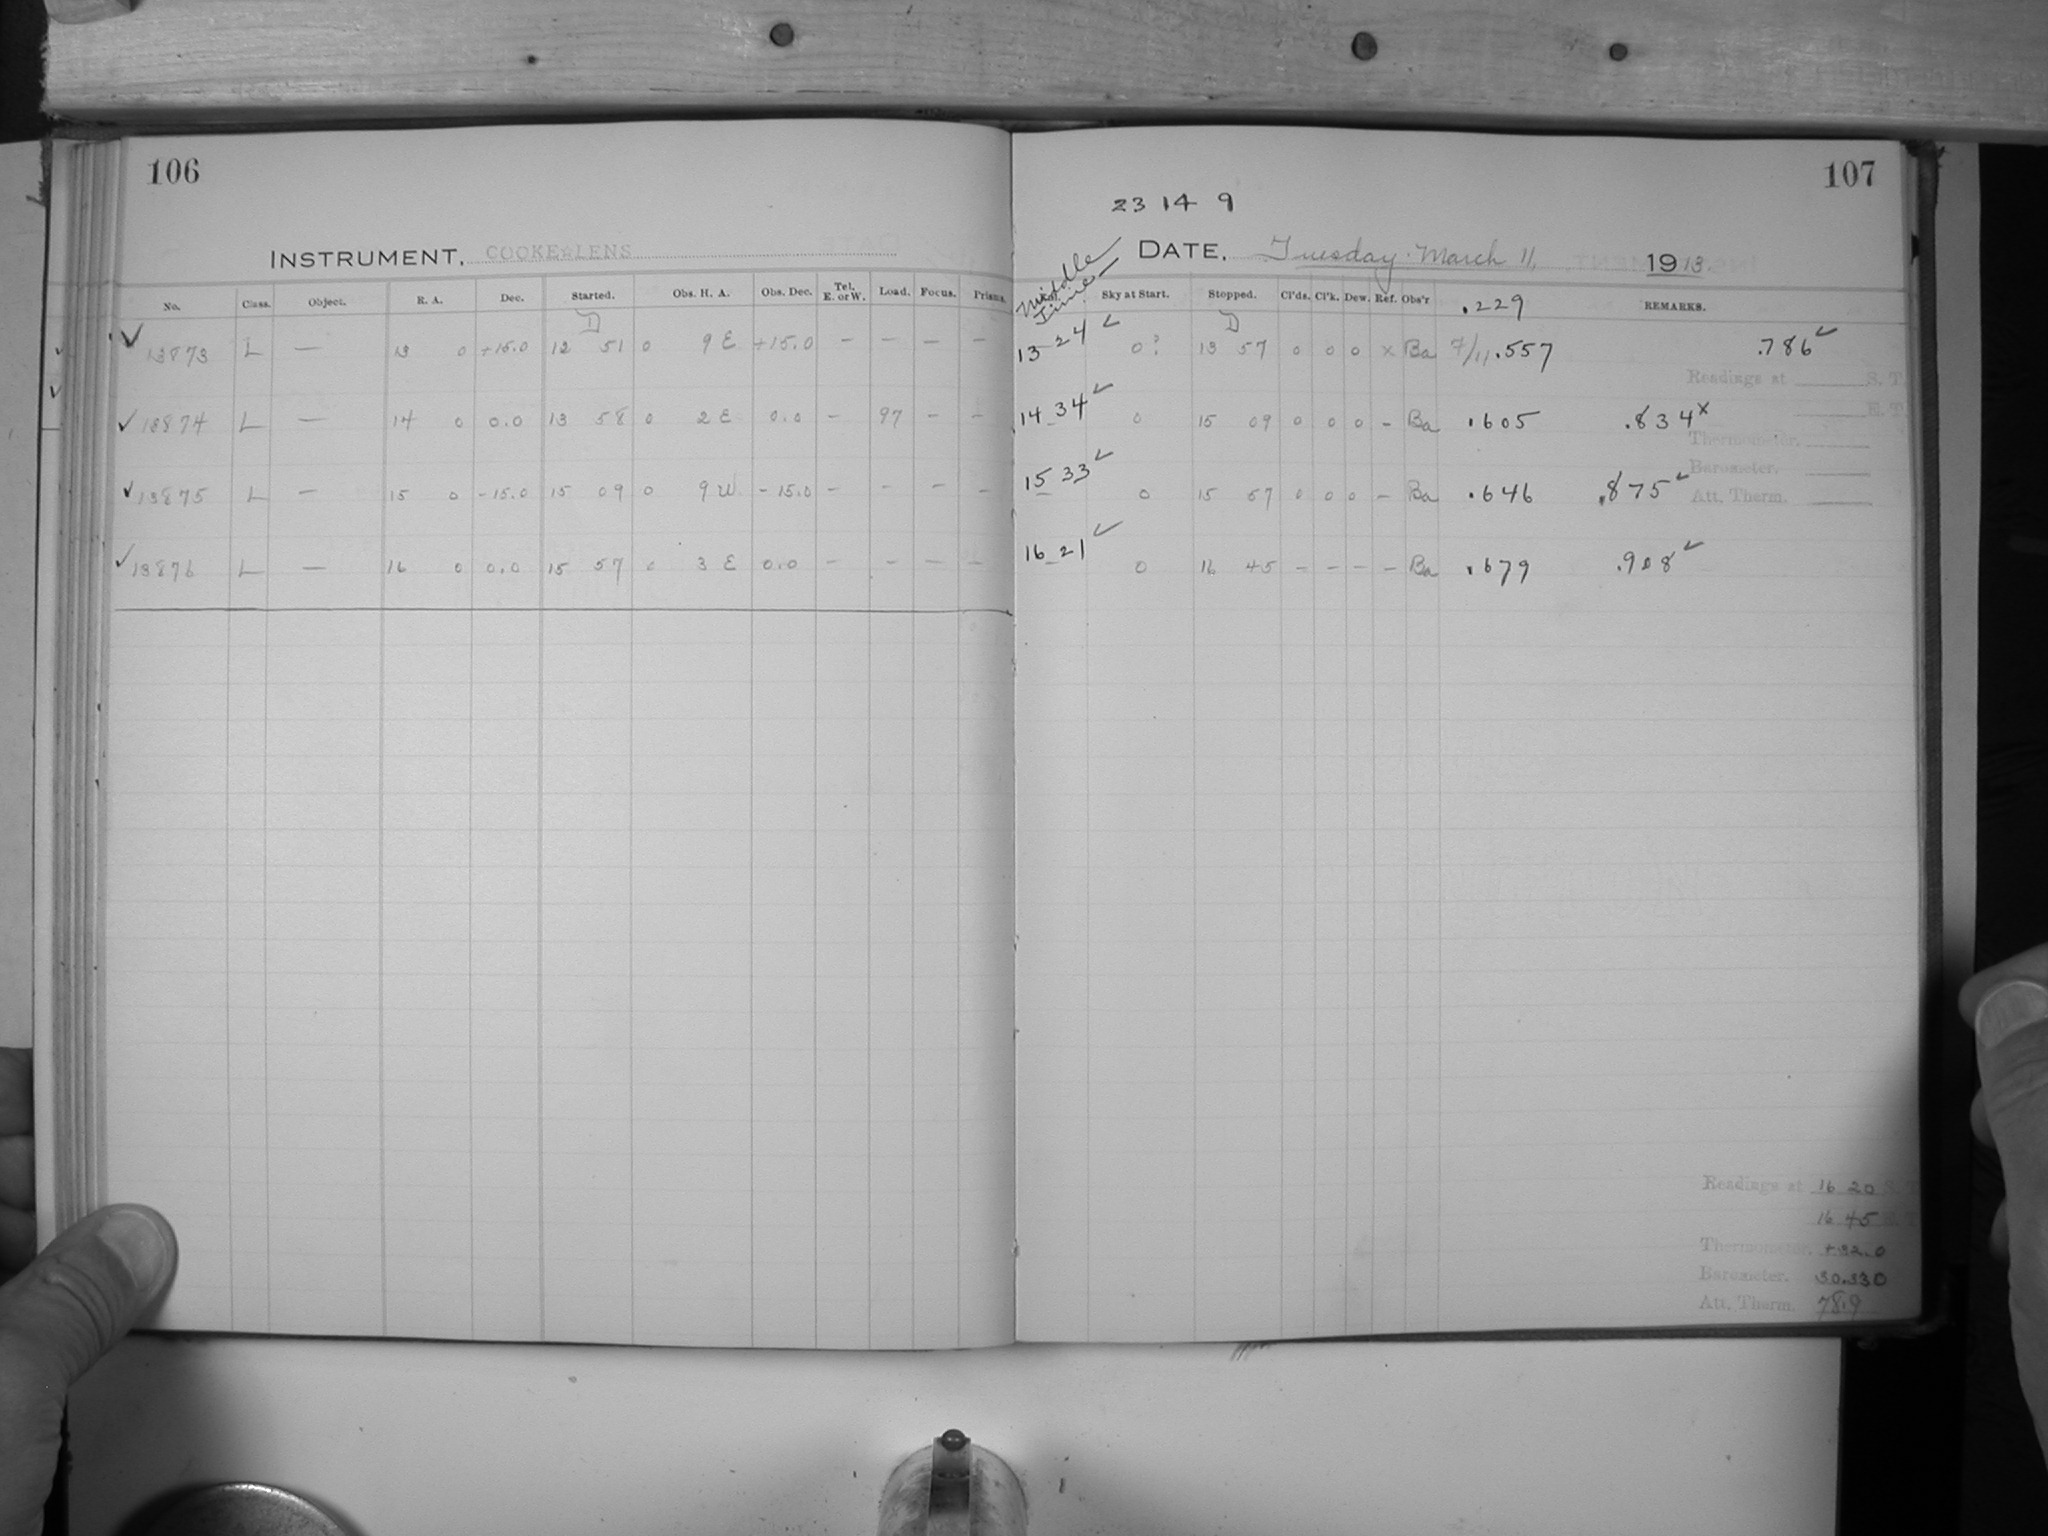 106
INSTRUMENT. COOKE LENS
No. Class. Object. R. A. Dec. Started. Obs. H. A. Obs. Dec. Tel. E. or W. Load. Focus. Prisms.
D
✓ 13873 L — 13 0 +15.0 12 51 0 9 E +15.0 — — — —
✓ 13874 L — 14 0 0.0 13 58 0 2 E 0.0 — 97 — —
✓ 13875 L — 15 0 -15.0 15 09 0 9 W -15.0 — — — —
✓ 13876 L — 16 0 0.0 15 57 0 3 E 0.0 — — — —
107
23 14 9
DATE. Tuesday. March 11, 1913.
Middle Time Sky at Start. Stopped. Cl'ds. Cl'k. Dew. Ref. Obs'r .229 REMARKS.
D
13 24 ✓ 0? 13 57 0 0 0 x Ba 7/11 .557 .786 ✓
Readings at S. T.
14 34 ✓ 0 15 09 0 0 0 - Ba .605 .834 x
Thermometer.
Barometer.
15 33 ✓ 0 15 57 0 0 0 - Ba .646 .875 ✓
Att. Therm.
16 21 ✓ 0 16 45 - - - - Ba .679 .908 ✓
Readings at 16 20 S. T.
16 45
Thermometer. +32.0
Barometer. 30.330
Att. Therm. 78.9